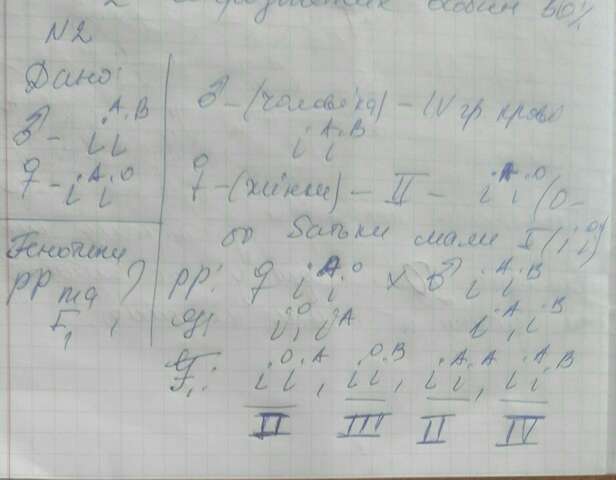 особин 50%
N2
Дано:
♂ - i^A i^B
♀ - i^A i^O
Генотипи
PP та F₁ ?
♂ - (чоловіка) - IV гр крові
i^A i^B
♀ - (жінки) - II - i^A i^O (о-
бо батьки мали I (i^O i^O)
PP: ♀ i^A i^O × ♂ i^A i^B
G: i^O, i^A i^A, i^B
F₁: i^O i^A, i^O i^B, i^A i^A, i^A i^B
II III II IV